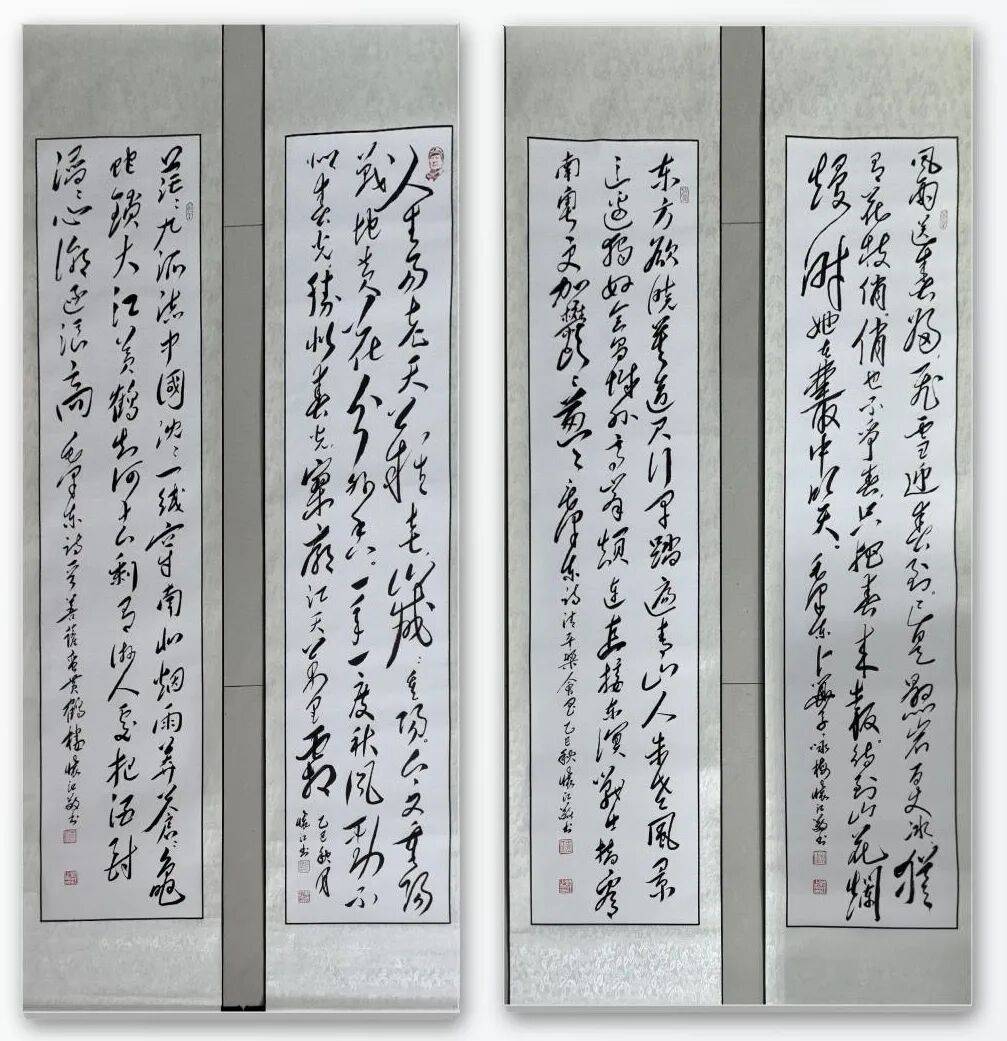 风雨送春归飞雪迎春到已是悬岩百丈冰猶
有花枝俏俏也不争春只把春来报待到山花爛
熳时她在叢中笑 毛泽东卜算子咏梅 懷江敬书
东方欲晓莫道君行早踏遍青山人未老风景
这边独好会昌城外高峰颠连直接东溟战士指看
南粤更加郁郁葱葱 毛泽东诗清平樂会昌 乙巳秋 懷江敬书
人生易老天难老岁岁重阳今又重阳
战地黄花分外香一年一度秋风劲不
似春光胜似春光寥廓江天万里霜 乙巳秋月
懷江书
茫茫九派流中國沈沈一线穿南北烟雨莽苍苍龟
蛇锁大江黄鹤知何去剩有游人处把酒酹
滔滔心潮逐浪高 毛泽东诗菩萨蛮黄鹤楼 懷江敬书